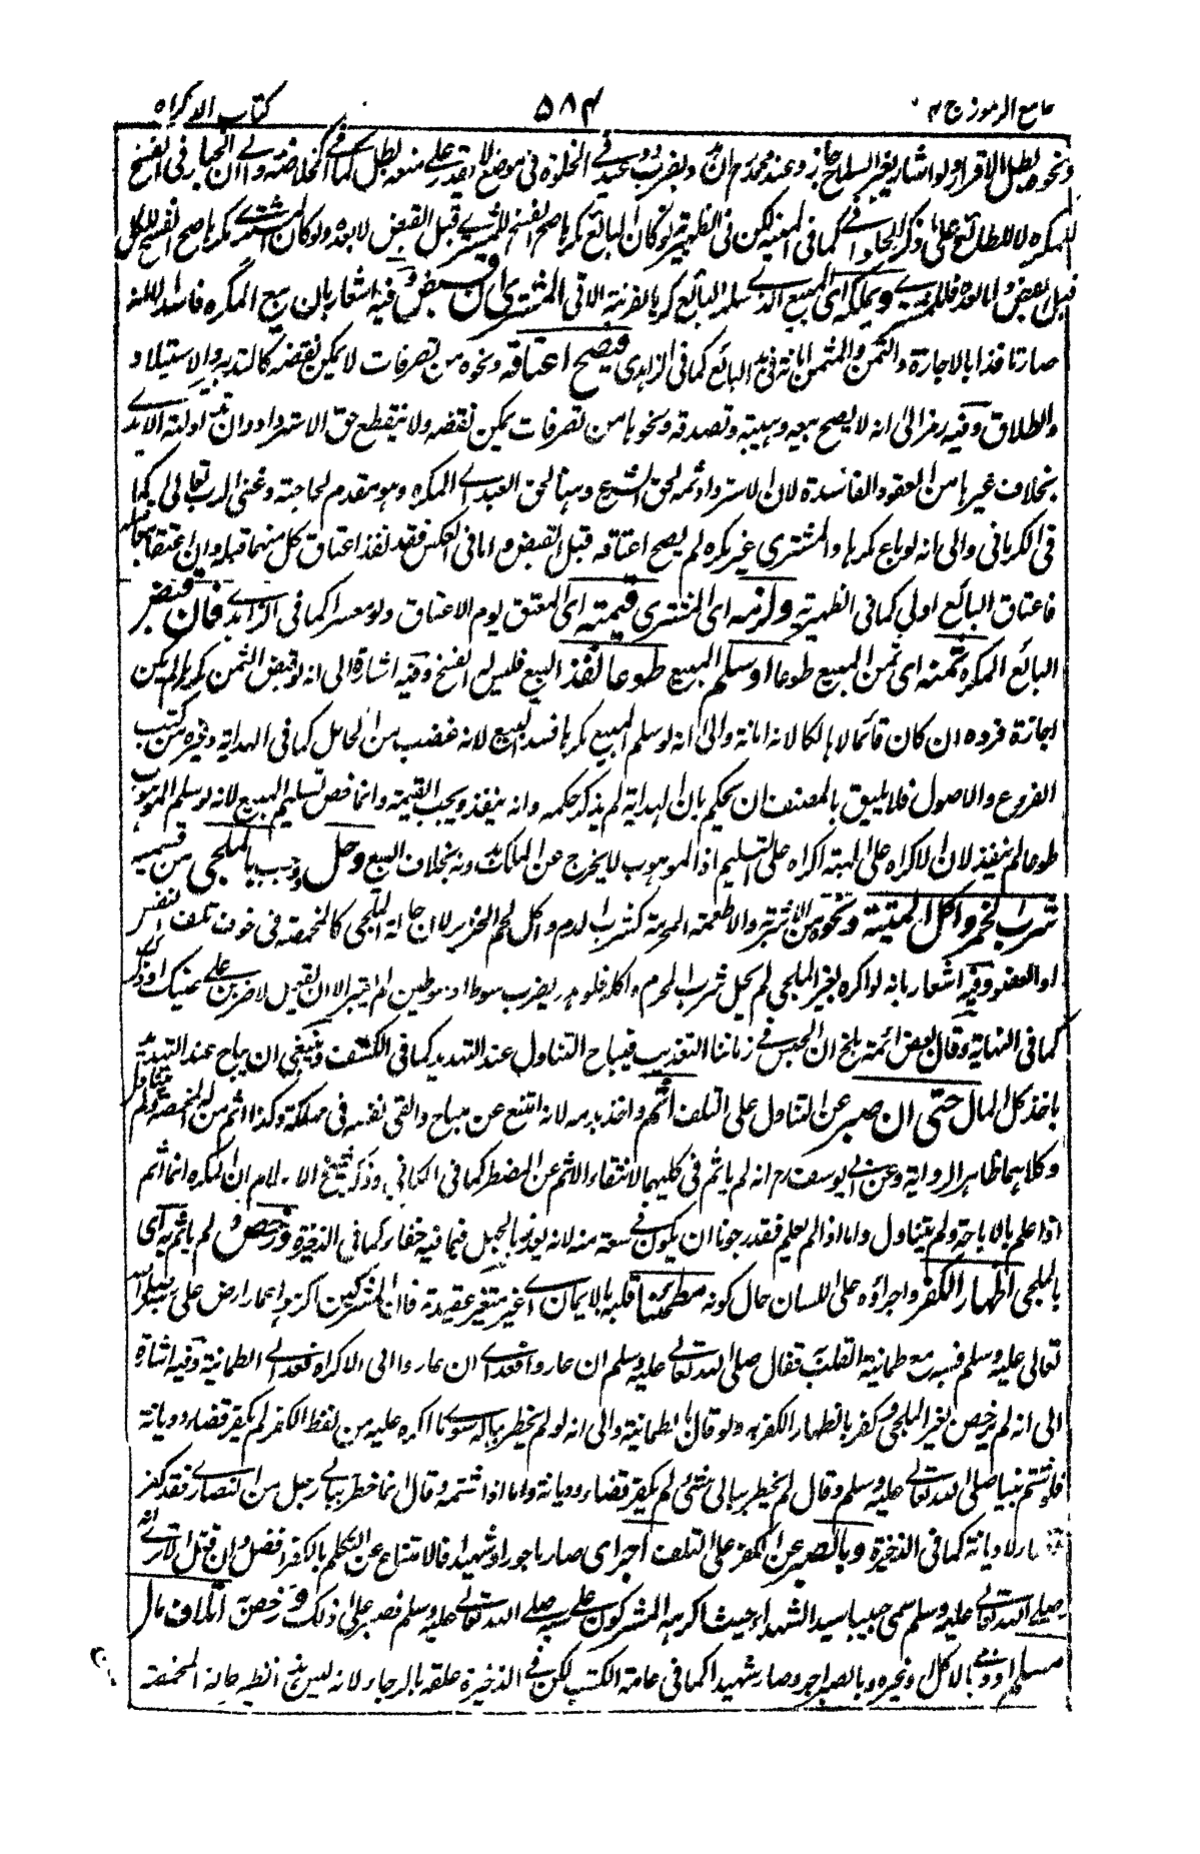 جامع الرموز ج ۲ ۵۸۴ كتاب الاكراه
ونحوه بطل الاقرار ولو اشار بغير السلاح جاز وعند محمد رح ان وبضرب وحيد في الخلوة في موضع لا يقدر على منعه بطل كما في الخلاصة والى ان الخيار في الفسخ
للمكره لا للطائع على ذكر الحاوي كما في المغنيه لكن في الظهيرية لو كان البائع مكرها صح الفسخ للمشتري قبل القبض لا بعده ولو كان المشتري مكرها صح الفسخ للكل
قبل القبض واما بعده فللمشتري ويملكه اى المبيع الذي سلمه البائع كرها بالقرينة الاتى المشترى ان قبض وفيه اشعار بان بيع المكره فاسد لانه
صار نافذا بالاجازة والثمن والمثمن امانة في يد البائع كما في الزاهدى فيصح اعتاقه ونحوه من تصرفات لا يمكن نقضه كالتدبير والاستيلاد
والطلاق وفيه رمز الى انه لا يصح بيعه وهبته وتصدقه ونحوها من تصرفات يمكن نقضه ولا ينقطع حق الاسترداد وان تداولته الايدى
بخلاف غيرها من العقود الفاسدة لان الاسترداد ثمه لحق الشرع وههنا لحق العبد اى المكره وهو مقدم لحاجته وغنى الرب تعالى كما
فى الكرمانى والى انه لو باع كرها والمشترى غير مكره لم يصح اعتاقه قبل القبض واما فى العكس فقد نفذ اعتاق كل منهما قبله وان اعتقا معا
فاعتاق البائع اولى كما فى الظهيرية ولزمه اى المشترى قيمته اى المعتق يوم الاعتاق ولو معسرا كما فى الزاهدى فان قبض
البائع المكره ثمنه اى ثمن المبيع طوعا او سلم المبيع طوعا نفذ البيع فليس له الفسخ وفيه اشارة الى انه لو قبض الثمن كرها لم يكن
اجازة فرده ان كان قائما لا هالكا لانه امانة والى انه لو سلم المبيع كرها فسد البيع لانه غضب من الحامل كما فى الهداية وغيره من كتب
الفروع والاصول فلا يليق بالمصنف ان يحكم بان الهداية لم يذكر حكمه وانه ينفذ ويجب القيمة وانما خص تسليم المبيع لانه لو سلم الموهوب
طوعا لم ينفذ لان الاكراه على الهبة اكراه على التسليم اذ الموهوب لا يخرج عن الملك بدونه بخلاف البيع وحل وجب بالملجى من قسميه
شرب الخمر واكل الميتة ونحوه من الاشربة والاطعمة المحرمة كشرب الدم واكل لحم الخنزير لان حالة الملجى كالمخمصة فى خوف تلف النفس
او العضو وفيه اشعار بانه لو اكره بغير الملجى لم يحل شرب المحرم واكله فلو هدد بضرب سوط او سوطين لم يعتبر الا ان يقول لاضربن على عينيك او ذكرك
كما فى النهاية وقال بعض ائمة بلخ ان الحبس في زماننا التعذيب فيباح التناول عند التهديد كما فى الكشف وينبغى ان يباح عند التهديد
باخذ كل المال حتى ان صبر عن التناول على التلف اثم واخذ بدمه لانه امتنع عن مباح والقى نفسه فى مهلكة وكذا اثم من له المخمصة ولم يتناول
وكلاهما ظاهر الرواية وعن ابى يوسف رح انه لم ياثم فى كليهما لانتفاء الاثم عن المضطر كما فى الكافى وذكر شيخ الاسلام ان المكره انما اثم
اذا علم بالاباحة ولم يتناول واما اذا لم يعلم فقد رجونا ان يكون فى سعة منه لانه يعذر بالجهل فيما فيه خفاء كما فى الذخيرة ورخص ولم ياثم به اى
بالملجى اظهار الكفر واجراؤه على اللسان حال كونه مطمئنا قلبه بالايمان اى غير متغير عقيدته فان المشركين اكرهوا عمارا رض على سبه صلى الله
تعالى عليه وسلم فسبه مع طمانية القلب فقال صلى الله تعالى عليه وسلم ان عادوا فعد اى ان عادوا الى الاكراه فعد الى الطمانية وفيه اشارة
الى انه لم يرخص لغير الملجى وكفر باظهار الكفر به ولو قال بالطمانية والى انه لو لم يخطر بباله سوى ما اكره عليه من لفظ الكفر لم يكفر قضاء وديانة
فلو شتم نبيا صلى الله تعالى عليه وسلم وقال لم يخطر ببالى شئ لم يكفر قضاء وديانة واما اذا شتمه وقال انما خطر ببالي رجل من النصارى فقد كفر
قضاء لا ديانة كما فى الذخيرة وبالصبر عن الكفر على التلف اجر اى صار ماجورا وشهيدا فالامتناع عن التكلم بالكفر افضل وان قتل الا ترى انه
صلى الله تعالى عليه وسلم سمى حبيبا سيد الشهداء حيث اكرهه المشركون على سبه صلى الله تعالى عليه وسلم فصبر على ذلك ورخص اتلاف مال
مسلم او ذمي بالاكل ونحوه وبالصبر اجر وصار شهيدا كما فى عامة الكتب لكن في الذخيرة علقه بالرجاء لانه ليس حالة المخمصة